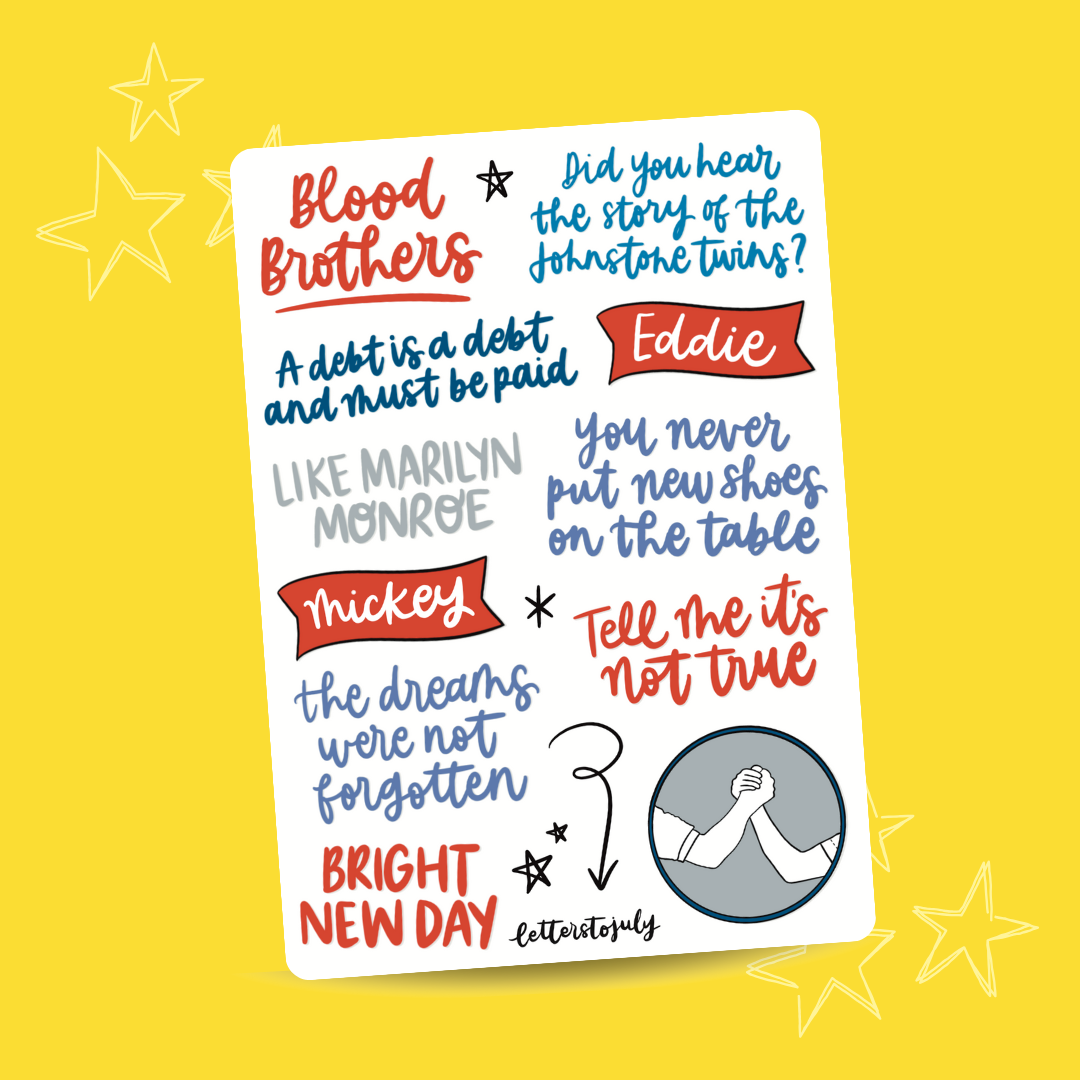 Blood
Brothers
Did you hear
the story of the
Johnstone twins?
A debt is a debt
and must be paid
Eddie
LIKE MARILYN
MONROE
You never
put new shoes
on the table
Mickey
Tell me it's
not true
the dreams
were not
forgotten
BRIGHT
NEW DAY
letterstojuly